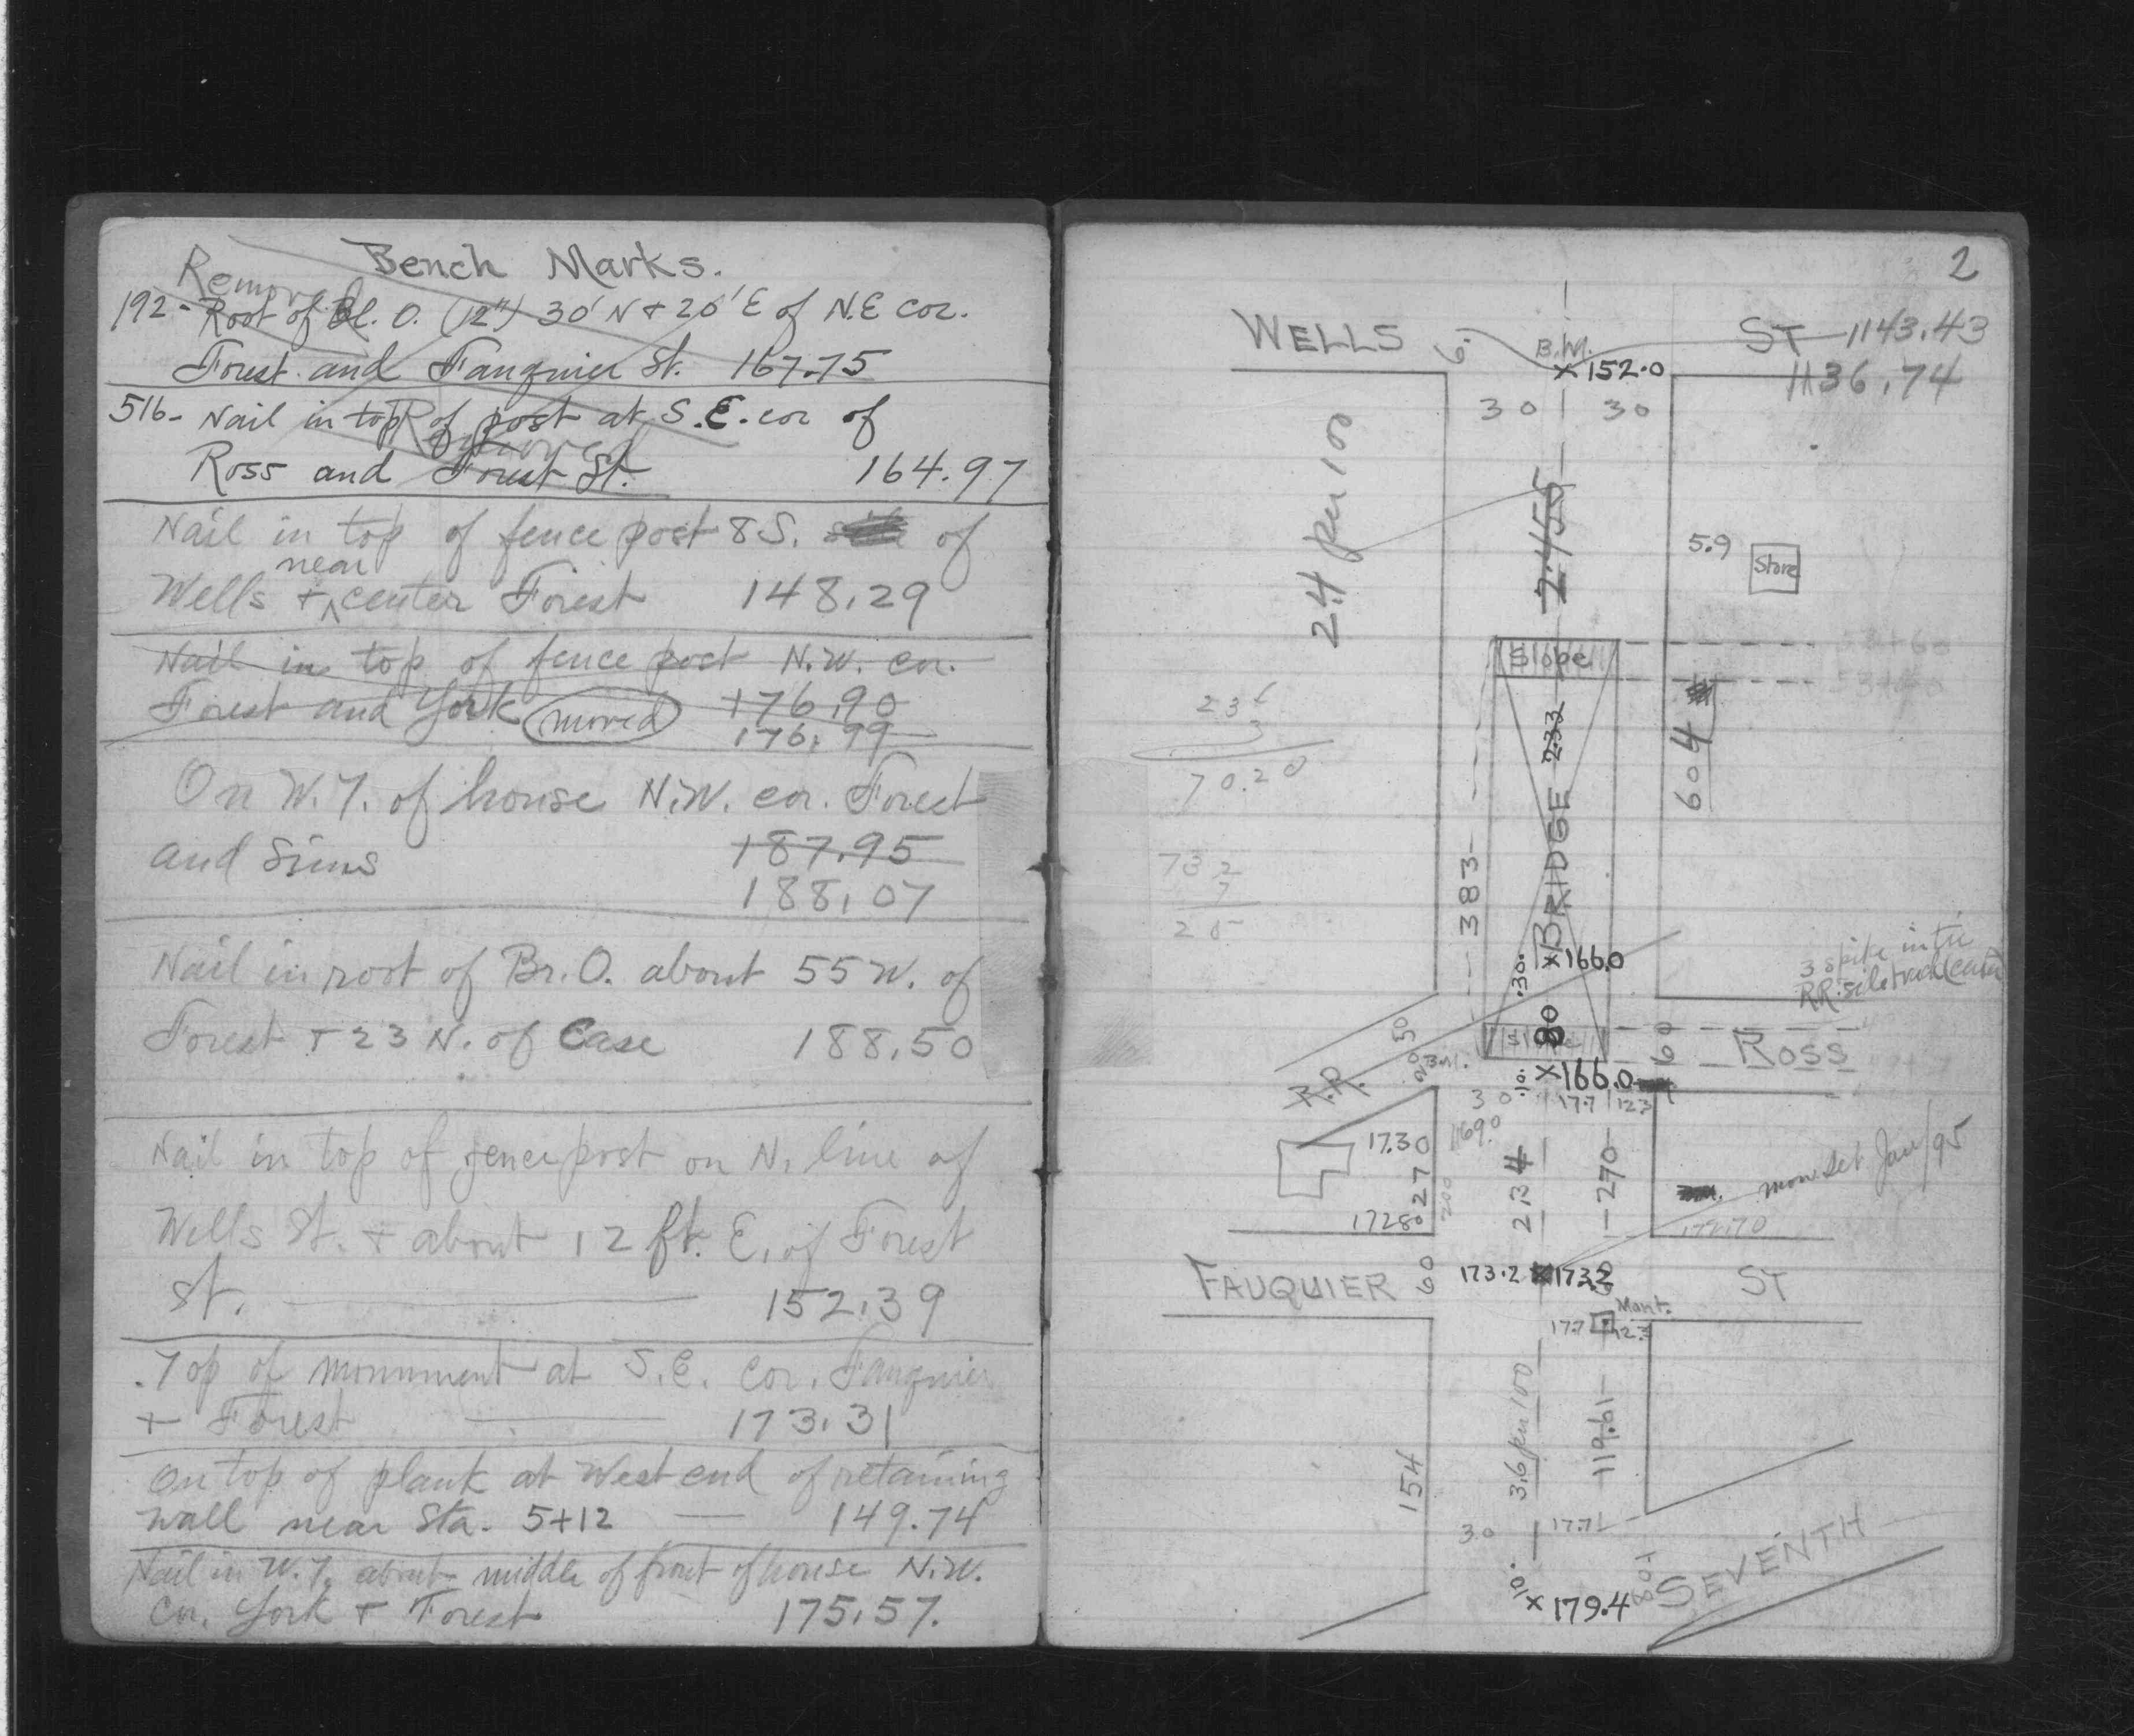 Bench Marks.
Removed
192- Root of Bl. O. (12") 30' N + 20' E of N.E cor.
Forest and Fauquier St. 167.75
516- Nail in top of post at S.E. cor of
Removed
Ross and Forest St. 164.97
Nail in top of fence post 8 S. of
near
Wells + center Forest 148.29
Nail in top of fence post N.W. cor.
Forest and York moved 176.90
176.99
On W.T. of house N.W. cor. Forest
and Sims 187.95
188.07
Nail in root of Br. O. about 55 W. of
Forest + 23 N. of Case 188.50
Nail in top of fence post on N. line of
Wells St. + about 12 ft. E. of Forest
St. 152.39
Top of monument at S.E. cor. Fauquier
+ Forest 173.31
On top of plank at West end of retaining
wall near Sta. 5+12 149.74
Nail in W.T. about middle of front of house N.W.
Cor. York + Forest 175.57.
2
WELLS ST 1143.43
6.
B.M.
×152.0
1136.74
30 30
2.4 per 100
2.455
5.9 Store
Slope
53+60
604
233
3
70.20
383
BRIDGE
732
7
.30. ×166.0
3 spike in tie
R.R. sidetrack
50
80
60
ROSS
R.R.
.10. ×166.0
30 17.7 12.3
1730
169.0
27
200
1728
234
270
mon set Jan/95
172.70
FAUQUIER 60 173.2 ×173.2 ST
Mont.
17.7 12.3
154
3.6 per 100
119.61
30 17.7
.10.
×179.4
108
SEVENTH